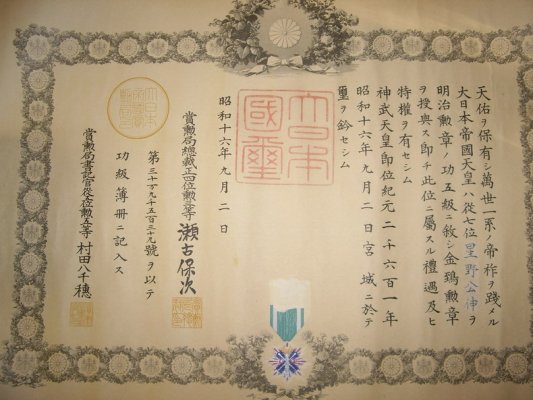 天佑ヲ保有シ萬世一系ノ帝祚ヲ踐メル
大日本帝國天皇ハ從七位星野公伸ヲ
明治勲章ノ功五級ニ敘シ金鵄勲章
ヲ授與ス即チ此位ニ屬スル禮遇及ヒ
特權ヲ有セシム
神武天皇即位紀元二千六百一年
昭和十六年九月二日宮城ニ於テ
璽ヲ鈐セシム
大日本
國璽
昭和十六年九月二日
賞勲局總裁正四位勲二等瀬古保次
第三十万九千五百三十九號ヲ以テ
功級簿册ニ記入ス
賞勲局書記官從六位勲五等村田八千穗